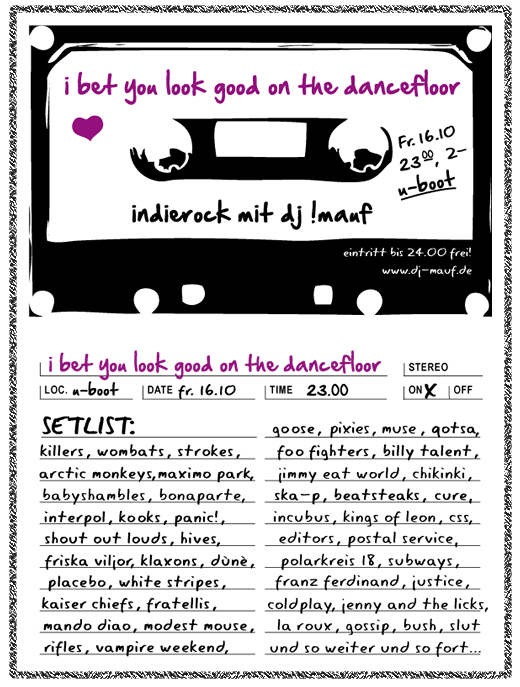 i bet you look good on the dancefloor
Fr. 16.10
23⁰⁰, 2-
u-boot
indierock mit dj !mauf
eintritt bis 24.00 frei!
www.dj-mauf.de
i bet you look good on the dancefloor
STEREO
LOC. u-boot
DATE fr. 16.10
TIME 23.00
ON X OFF
SETLIST:
killers, wombats, strokes,
arctic monkeys, maximo park,
babyshambles, bonaparte,
interpol, kooks, panic!,
shout out louds, hives,
friska viljor, klaxons, dùnè,
placebo, white stripes,
kaiser chiefs, fratellis,
mando diao, modest mouse,
rifles, vampire weekend,
goose, pixies, muse, qotsa,
foo fighters, billy talent,
jimmy eat world, chikinki,
ska-p, beatsteaks, cure,
incubus, kings of leon, css,
editors, postal service,
polarkreis 18, subways,
franz ferdinand, justice,
coldplay, jenny and the licks,
la roux, gossip, bush, slut
und so weiter und so fort...